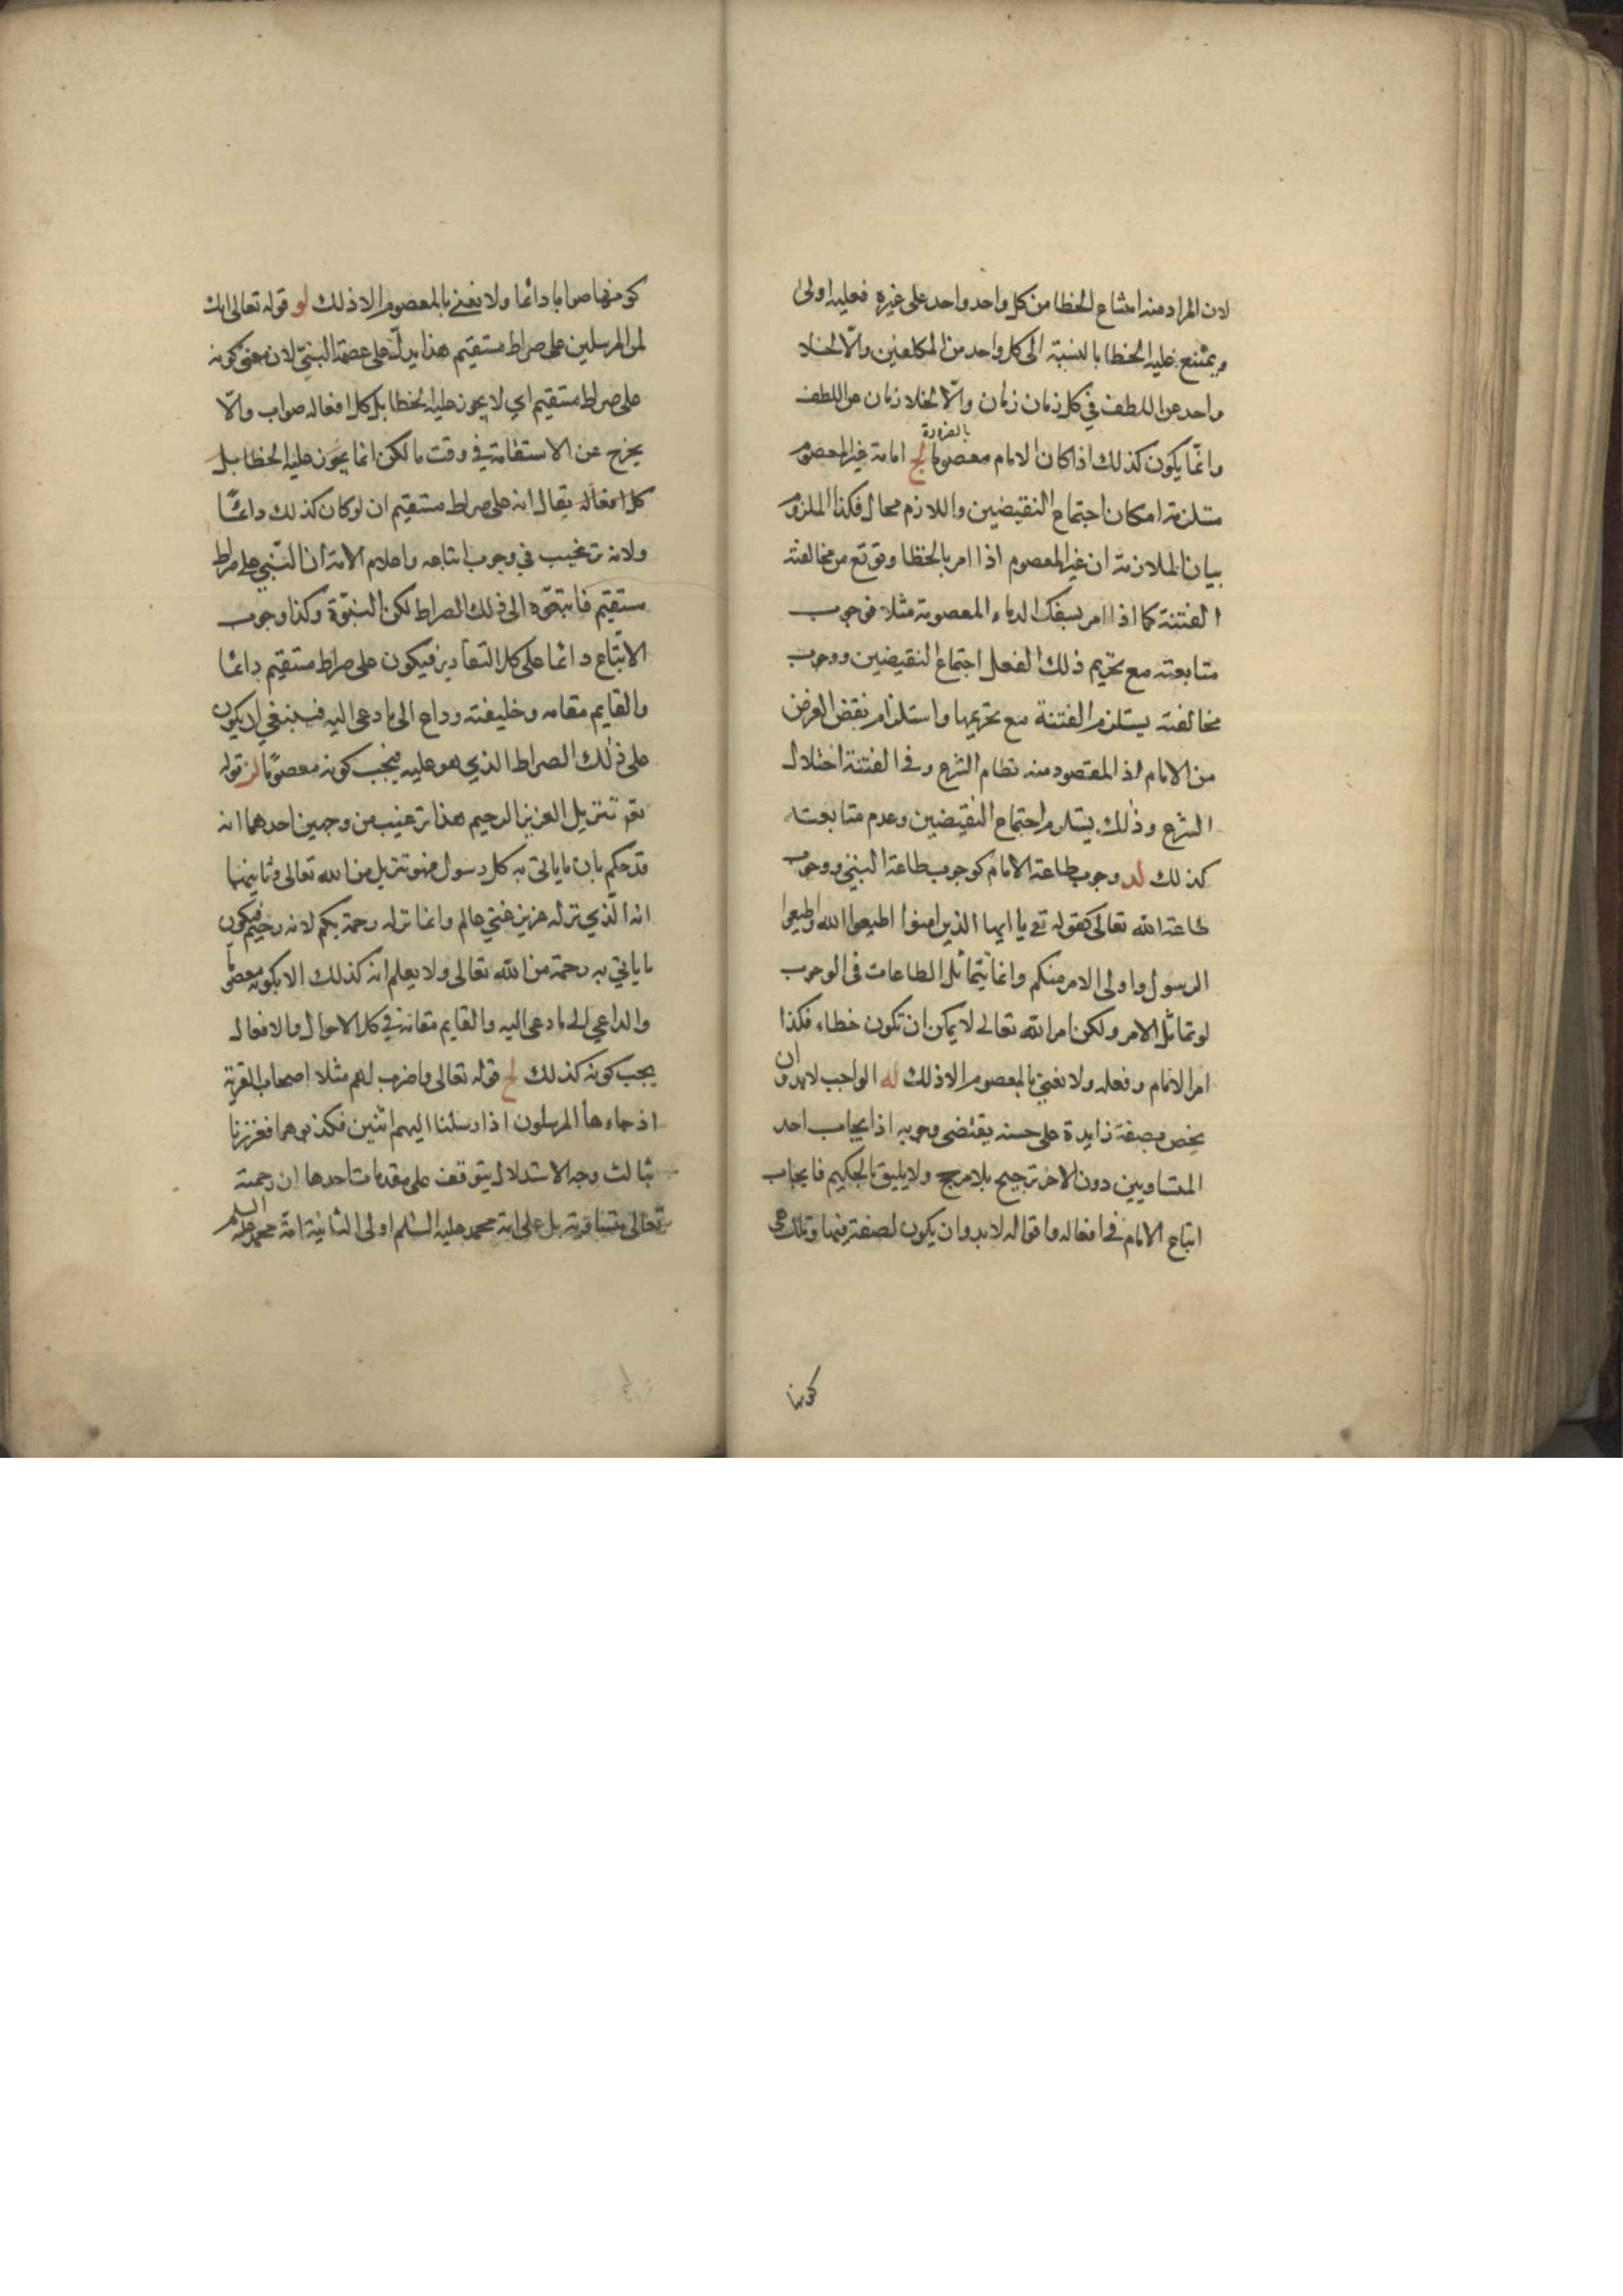 لان المراد منه امتناع الخطا من كل واحد واحد على غيره فعليه اولى
ويمتنع عليه الخطا بالنسبة الى كل واحد من المكلفين والّا لخلا
واحد عن اللطف في كل زمان زمان والّا لخلا زمان عن اللطف
وانّما يكون كذلك اذا كان الامام معصوما بالضرورة لج امامة غير المعصوم
ستلزمة امكان اجتماع النقيضين واللازم محال فكذا الملزوم
بيان الملازمة ان غير المعصوم اذا امر بالخطا وتوقع من مخالفته
الفتنة كما اذا امر بسفك الدماء المعصومة مثلا فوجوب
متابعته مع تحريم ذلك الفعل اجتماع النقيضين ووجوب
مخالفته يستلزم الفتنة مع تحريمها واستلزام نقض الغرض
من الامام اذ المقصود منه نظام الشرع وفي الفتنة اختلال
الشرع وذلك يستلزم اجتماع النقيضين وعدم متابعته
كذلك لد وجوب طاعة الامام كوجوب طاعة النبي ووجوب
طاعة الله تعالى كقوله تع يا ايها الذين امنوا اطيعوا الله واطيعوا
الرسول واولى الامر منكم وانما يتماثل الطاعات في الوجوب
لو تماثل الامر ولكن امر الله تعالى لا يمكن ان تكون خطاء فكذا
امر الامام وفعله ولا نعني بالمعصوم الا ذلك له الواجب لا بد وان
يخص بصفة زايدة على حسنه يقتضى وجوبه اذ ايجاب احد
المتساويين دون الاخر ترجيح بلا مرجح ولا يليق بالحكيم فايجاب
اتباع الامام في افعاله واقواله لا بد وان يكون لصفة فيها وتلك هي
كونها
كونها صوابا دائما ولا نعني بالمعصوم الا ذلك لو قوله تعالى انك
لمن المرسلين على صراط مستقيم هذا يدل على عصمة النبيّ لان معنى كونه
على صراط مستقيم اي لا يجوز عليه الخطا بل كل افعاله صواب والّا
يخرج عن الاستقامة في وقت ما لكن انما يجوز عليه الخطا بل
كل افعاله يقال انه على صراط مستقيم ان لو كان كذلك دائمًا
ولانه ترغيب في وجوب اتباعه واعلام الامة ان النّبي على صراط
مستقيم فاتبعوه الى ذلك الصراط لكن النبوّة وكذا وجوب
الاتّباع دائما على كل التقادير فيكون على صراط مستقيم دائما
والقايم مقامه وخليفته وداع الى ما دعى اليه فينبغي ان يكون
على ذلك الصراط الذي هو عليه فيجب كونه معصومًا لز قوله
تع تنزيل العزيز الرحيم هذا ترغيب من وجهين احدهما انه
قد حكم بان ما ياتي به كل رسول فهو تنزيل من الله تعالى وثانيهما
انه الّذي نزله عزيز غني عالم وانما نزله رحمة بكم لانه رحيم فيكون
ما ياتي به رحمة من الله تعالى ولا يعلم انه كذلك الا بكونه معصوما
والداعي الى ما دعى اليه والقايم مقامه في كل الاحوال والافعال
يجب كونه كذلك لح قوله تعالى واضرب لهم مثلا اصحاب القرية
اذ جاءها المرسلون اذ ارسلنا اليهم اثنين فكذبوهما فعززنا
بثالث وجه الاستدلال يتوقف على مقدمات احدها ان رحمته
تعالى متساوية بل على امة محمد عليه السّلم اولى الثانية امّة محمد عليه السلم